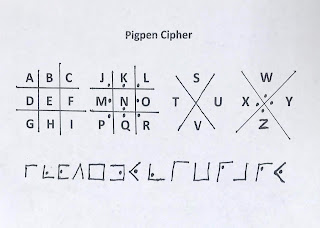 Pigpen Cipher
A B C J K L S W
D E F M N O T U X Y
G H I P Q R V Z